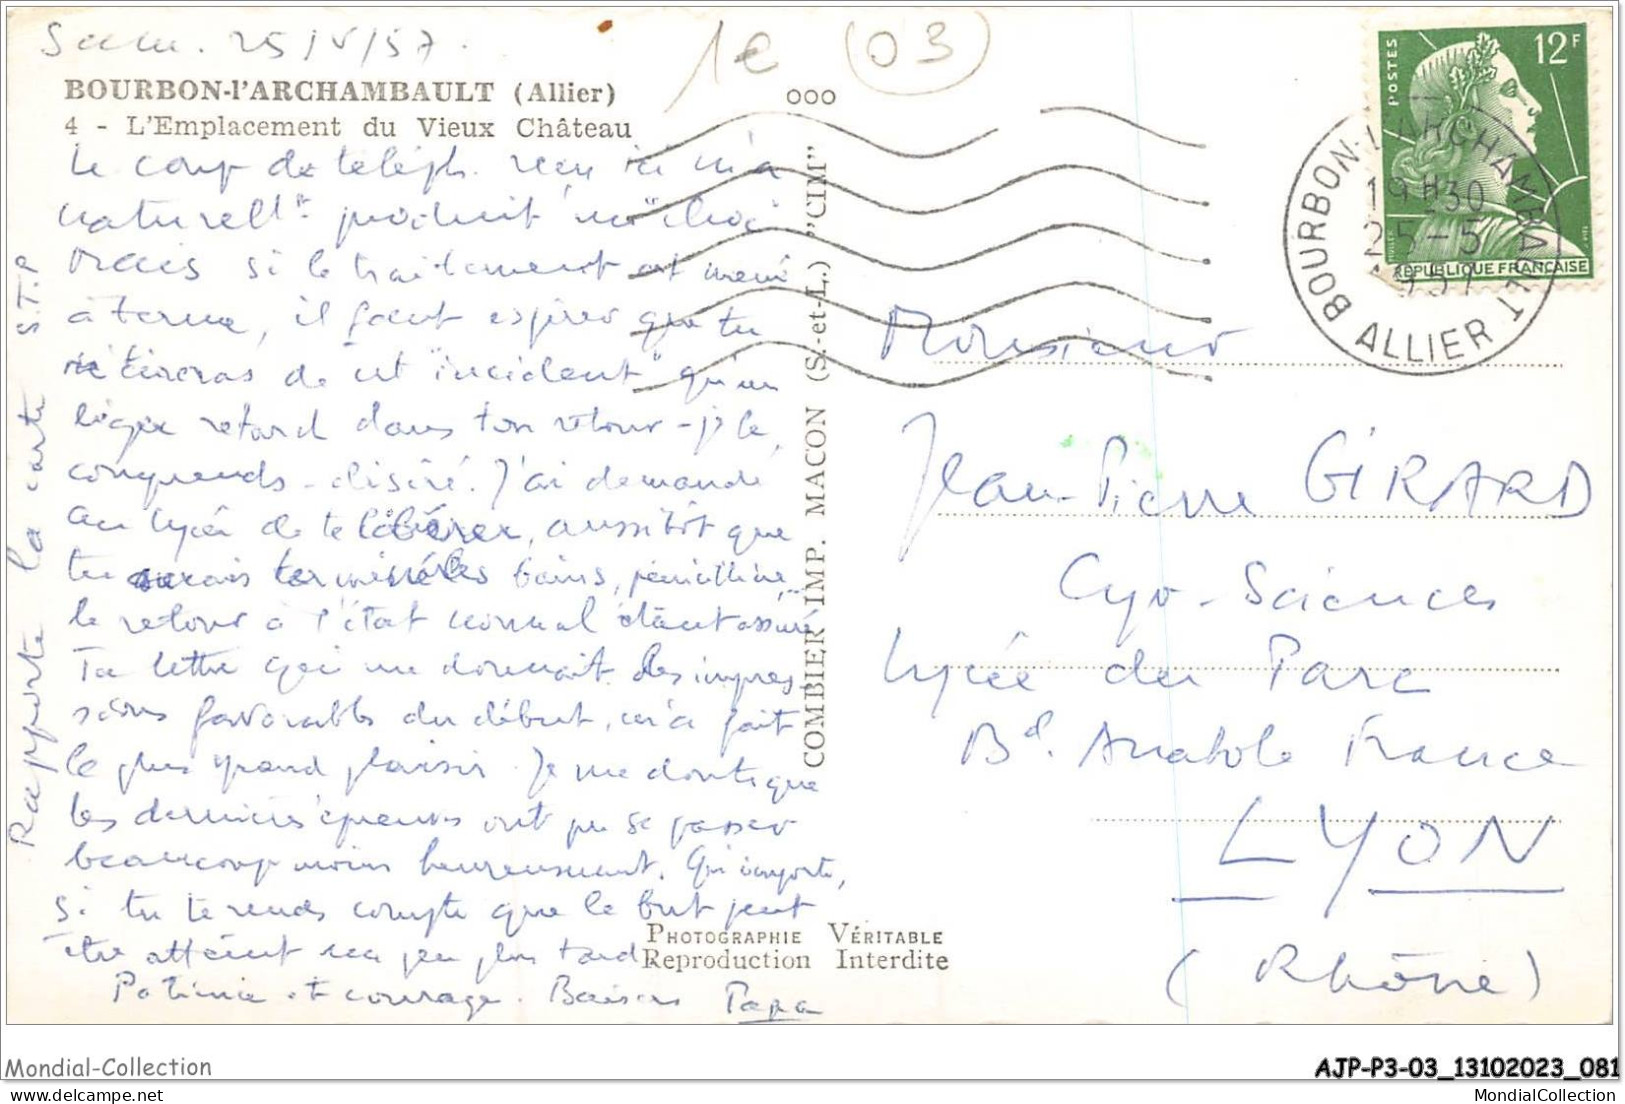 Sam. 25/V/57.
1e (03)
BOURBON-l'ARCHAMBAULT (Allier)
4 - L'Emplacement du Vieux Château
ooo
Le coup de téléph. reçu ici m'a
naturell^t produit un "choc"
Mais si le traitement est mené
à terme, il faut espérer que tu
ne tireras de cet "incident" qu'un
léger retard dans ton retour - je le
comprends - désiré. J'ai demandé
au lycée de te libérer, aussitôt que
tu aurais terminé les bains, pénicilline,
le retour à l'état normal étant assuré
Ta lettre qui me donnait des impres
sions favorables du début, m'a fait
le plus grand plaisir. Je me doute que
les dernières épreuves ont pu se passer
beaucoup moins heureusement. Qu'importe,
si tu te rends compte que le but peut
être atteint un peu plus tard
Patience et courage. Baisers Papa
Rapporte la carte S.T.P
COMBIER IMP. MACON (S.-et-L.) "CIM"
PHOTOGRAPHIE VÉRITABLE
Reproduction Interdite
POSTES
12F
REPUBLIQUE FRANÇAISE
BOURBON-L'ARCHAMBAULT
19H30
25-5
1957
ALLIER
Monsieur
Jean-Pierre GIRARD
Cyro-Sciences
Lycée du Parc
B^d. Anatole France
LYON
(Rhône)
Mondial-Collection
AJP-P3-03_13102023_081
delcampe.net
MondialCollection